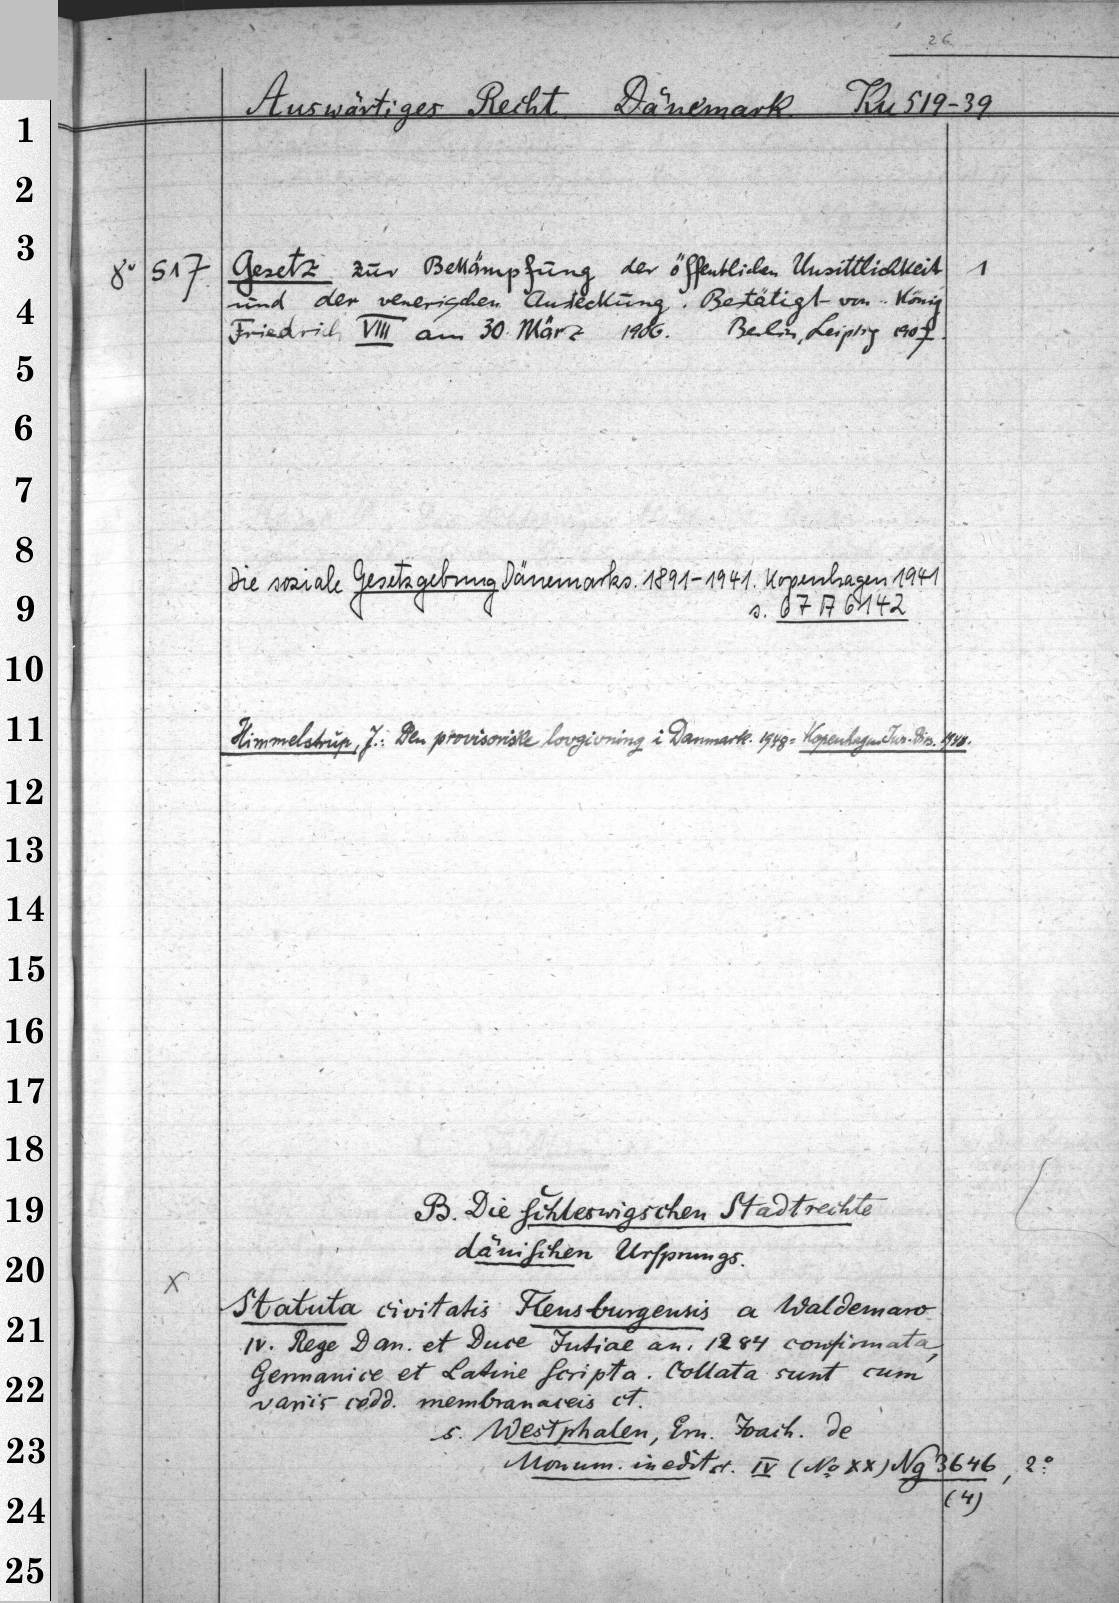 26
Auswärtiges Recht. Dänemark. Ku 519-39
1
2
3
8° 517 Gesetz zur Bekämpfung der öffentlichen Unsittlichkeit 1
4
und der venerischen Ansteckung. Bestätigt von König
Friedrich VIII am 30. März 1906. Berlin, Leipzig 1907.
5
6
7
8
Die soziale Gesetzgebung Dänemarks. 1891-1941. Kopenhagen 1941
9
s. 67 A 6142
10
11
Himmelstrup, J.: Den provisoriske lovgivning i Danmark. 1948 = Kopenhagen Jur. Diss. 1948.
12
13
14
15
16
17
18
19
B. Die Schleswigschen Stadtrechte
dänischen Ursprungs.
20
x
Statuta civitatis Flensburgensis a Waldemaro
21
IV. Rege Dan. et Duce Jutiae an. 1284 confirmata,
22
Germanice et Latine scripta. Collata sunt cum
variis codd. membranaceis et.
s. Westphalen, Ern. Joach. de
23
Monum. inedit. IV (No XX) Ng 3646, 2°
24
(4)
25